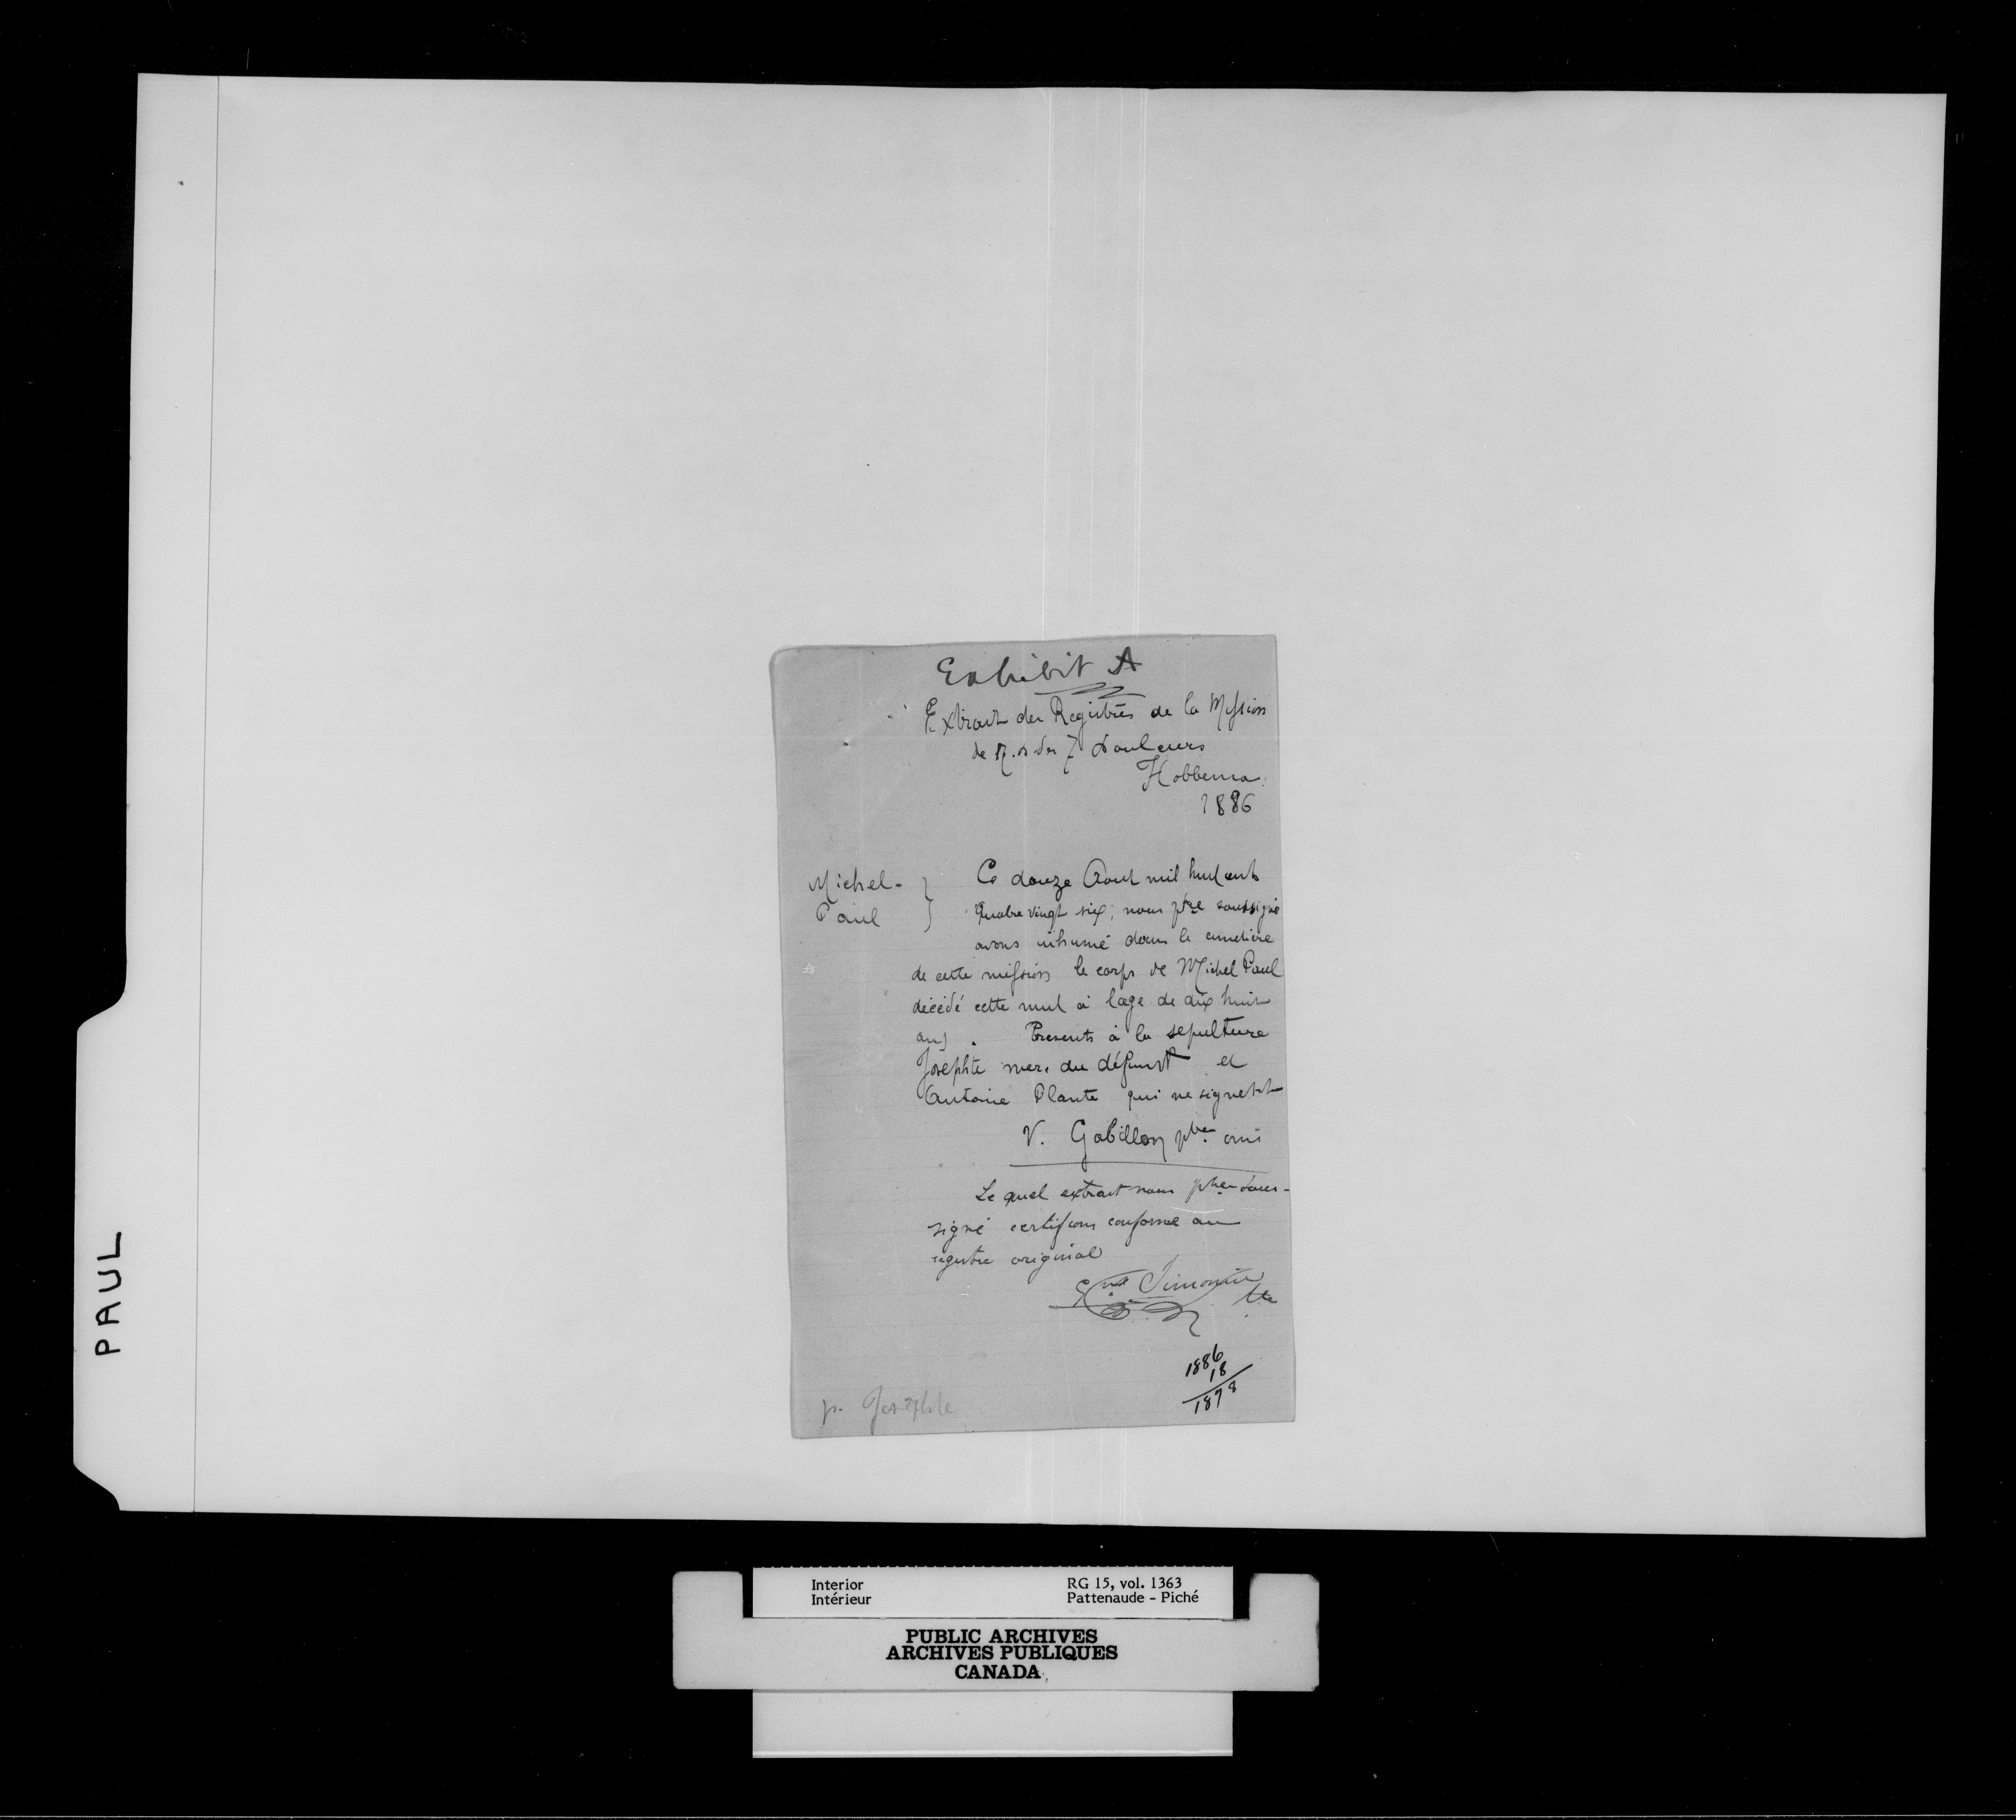 Exhibit A
Extrait des Registres de la Mission
de N. D. des 7 Douleurs
Hobbema
1886
Michel-
Paul
Ce douze Aout mil huit cent
Quatre vingt six, nous ptre soussigné
avons inhumé dans le cimetière
de cette mission le corps de Michel Paul
décédé cette nuit à l'age de dix huit
ans. Presents à la sepulture
Josephte mere du défunt et
Antoine Plante qui ne signent
V. Gabillon ptre omi
Le quel extrait nous ptre sous-
signé certifions conforme au
registre original
Simonin
1886
18
1878
p. Josephte
PAUL
Interior
Intérieur
RG 15, vol. 1363
Pattenaude - Piché
PUBLIC ARCHIVES
ARCHIVES PUBLIQUES
CANADA